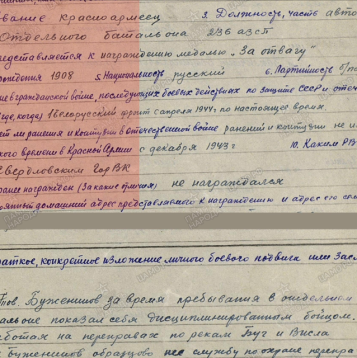 звание красноармеец 3. Должность, часть авто
Отдельного батальона 236 азсп
редставляется к награждению медалью „За отвагу"
рождения 1908 5. Национальность русский 6. Партийность б/п
ие в гражданской войне, последующих боевых действиях по защите СССР и отече
где, когда) 1 Белорусский фронт с апреля 1944 г. по настоящее время.
еет ли ранения и контузии в отечественной войне ранений и контузии не и
кого времени в Красной Армии с декабря 1943 г 10. Каким РВ
Свердловским ГорВК
ранее награжден (за какие отличия) не награждался
оянный домашний адрес представляемого к награждению и адрес его сем
раткое, конкретное изложение личного боевого подвига или засл
Тов. Буженинов за время пребывания в отдельном
альоне показал себя дисциплинированным бойцом.
аботая на переправах по рекам Буг и Висла
Буженинов образцово нес службу по охране перепра